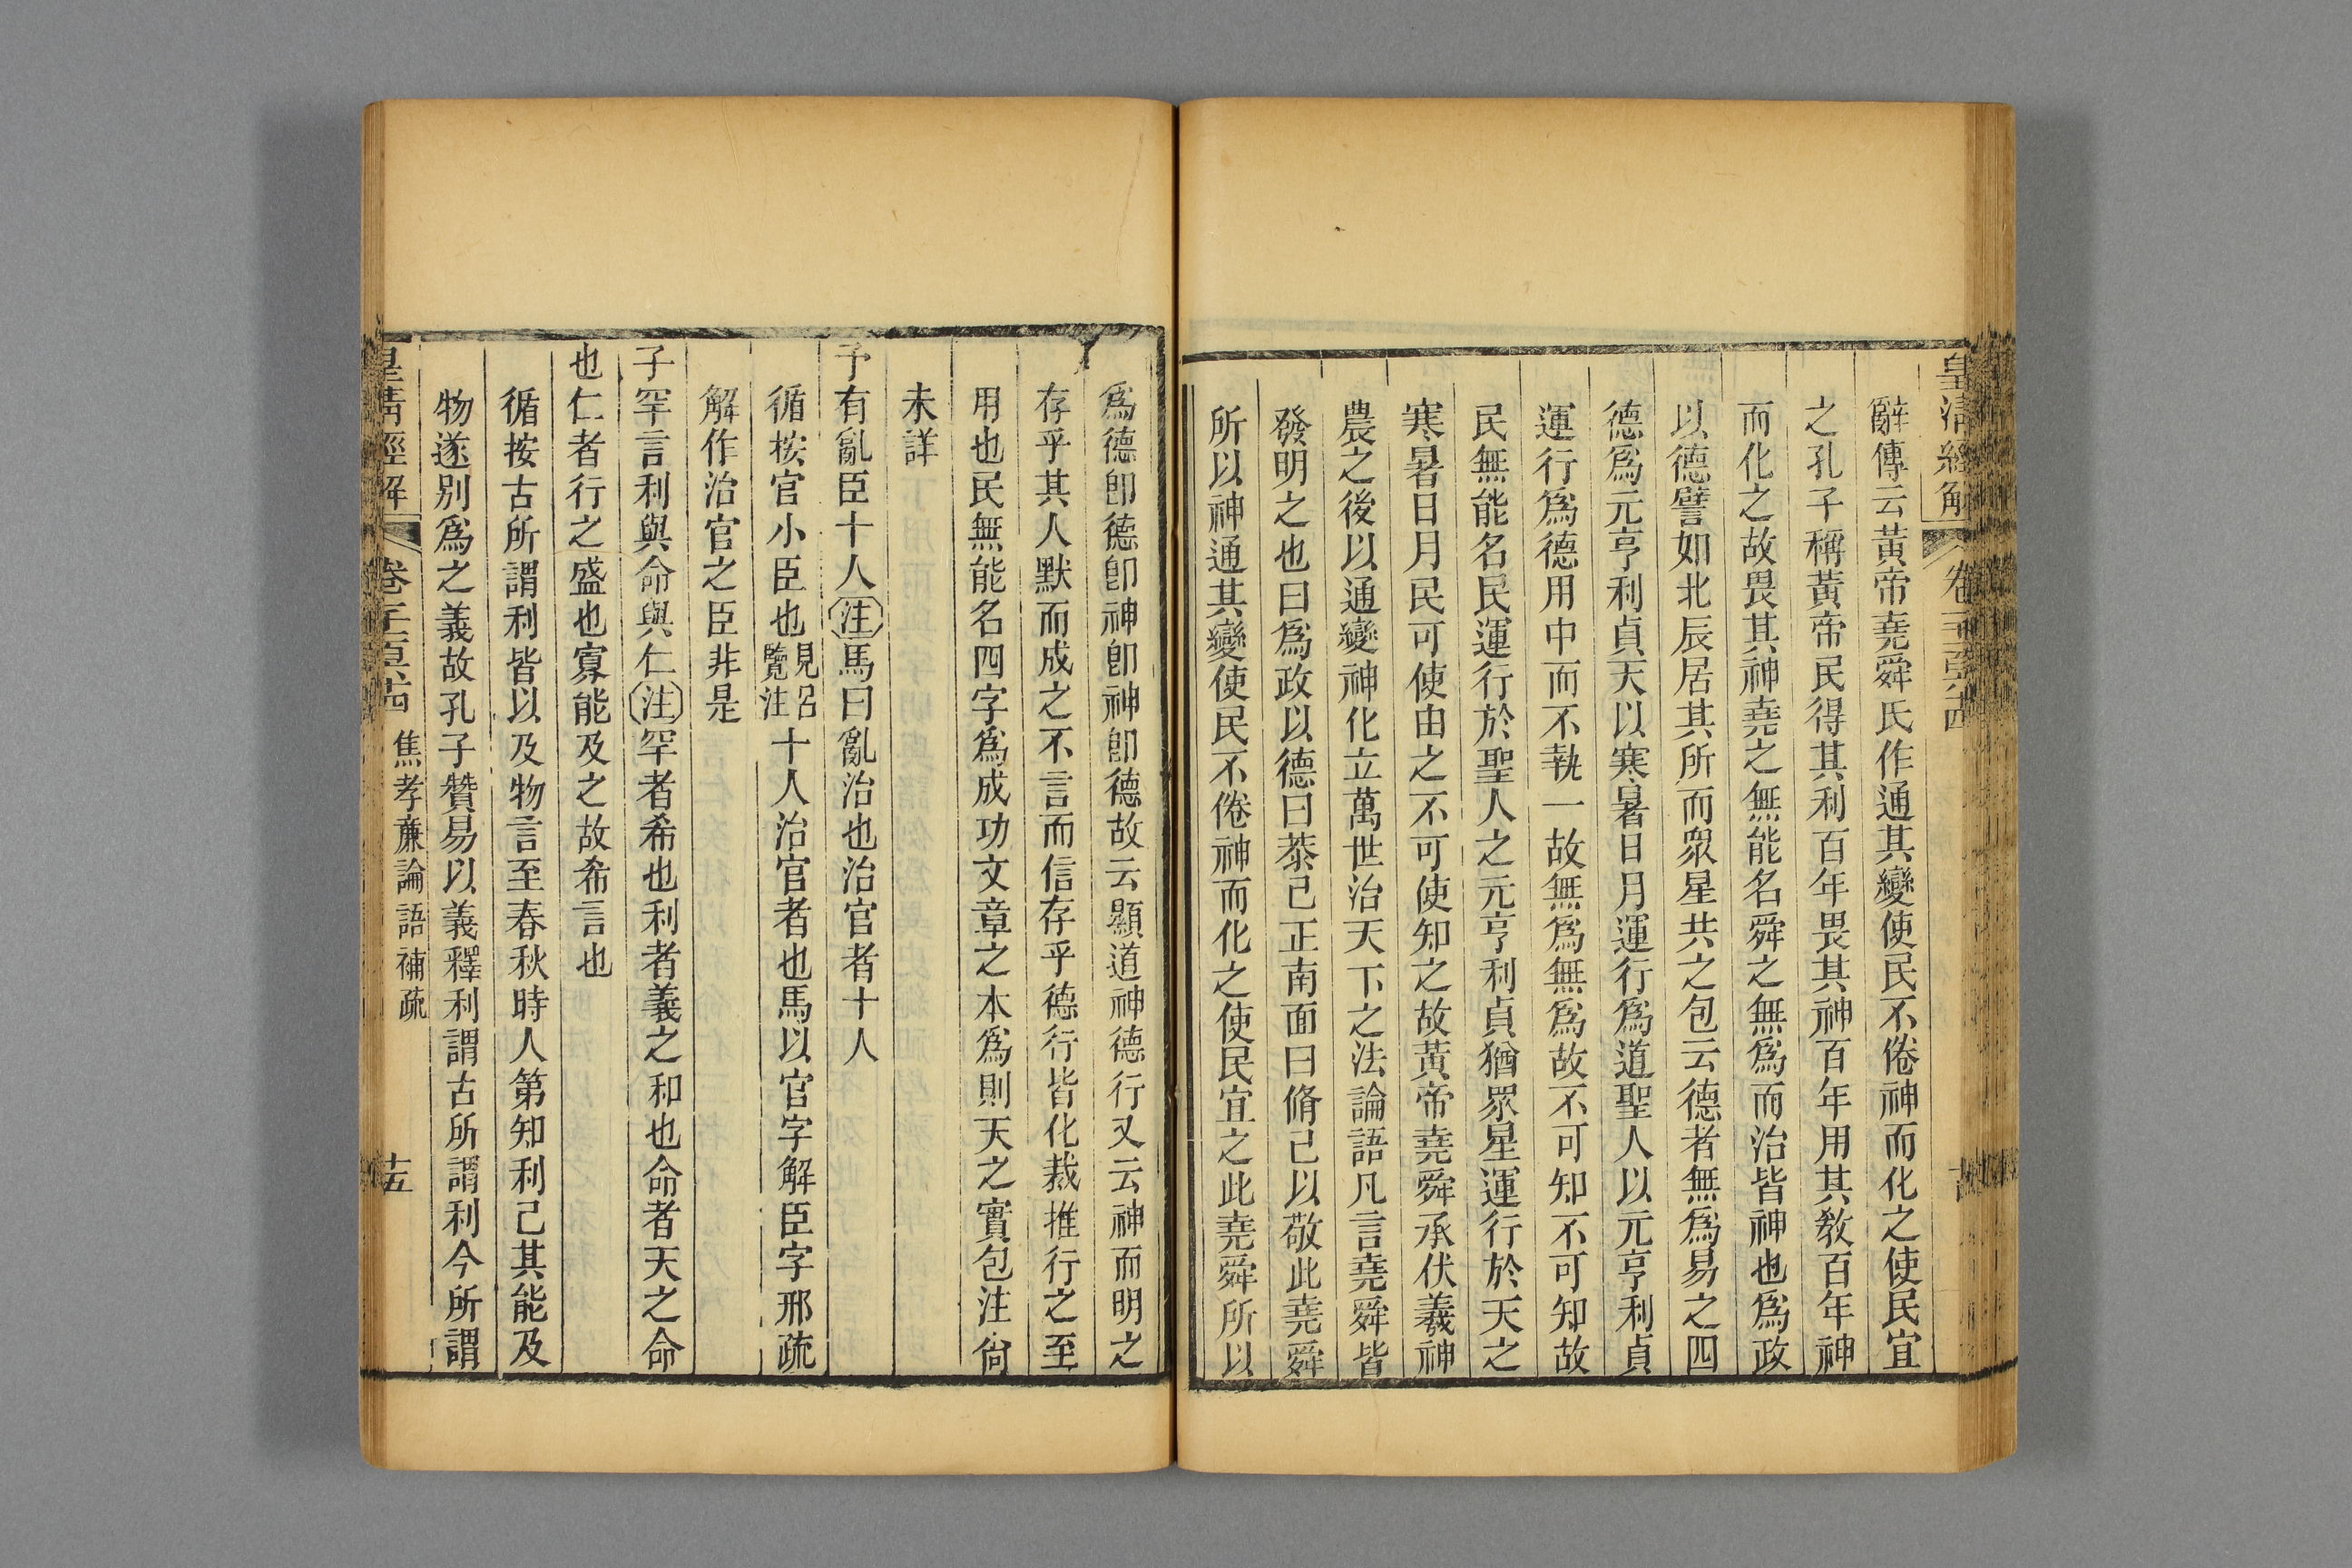 皇清經解
卷一千一百六十四
辭傳云黃帝堯舜氏作通其變使民不倦神而化之使民宜
之孔子稱黃帝民得其利百年畏其神百年用其教百年神
而化之故畏其神堯之無能名舜之無爲而治皆神也爲政
以德譬如北辰居其所而眾星共之包云德者無爲易之四
德爲元亨利貞天以寒暑日月運行爲道聖人以元亨利貞
運行爲德用中而不執一故無爲無爲故不可知不可知故
民無能名民運行於聖人之元亨利貞猶眾星運行於天之
寒暑日月民可使由之不可使知之故黃帝堯舜承伏羲神
農之後以通變神化立萬世治天下之法論語凡言堯舜皆
發明之也曰爲政以德曰恭己正南面曰脩己以敬此堯舜
所以神通其變使民不倦神而化之使民宜之此堯舜所以
爲德卽德卽神卽神卽德故云顯道神德行又云神而明之
存乎其人默而成之不言而信存乎德行皆化裁推行之至
用也民無能名四字爲成功文章之本爲則天之實包注尙
未詳
予有亂臣十人注馬曰亂治也治官者十人
循桉官小臣也見呂覽注十人治官者也馬以官字解臣字邢疏
解作治官之臣非是
子罕言利與命與仁注罕者希也利者義之和也命者天之命
也仁者行之盛也寡能及之故希言也
循按古所謂利皆以及物言至春秋時人第知利己其能及
物遂別爲之義故孔子贊易以義釋利謂古所謂利今所謂
皇清經解
焦孝廉論語補疏
十五